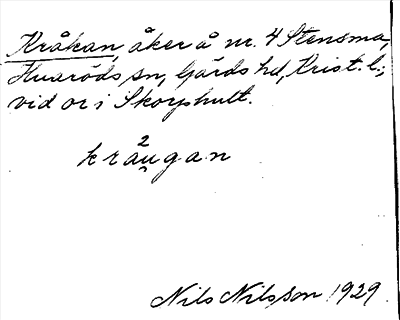 Kråkan, åker å nr. 4 Stensma,
Huaröds sn, Gärds hd, Krist. l.;
vid or i Skorphult.
2
kråu̯gan
Nils Nilsson 1929